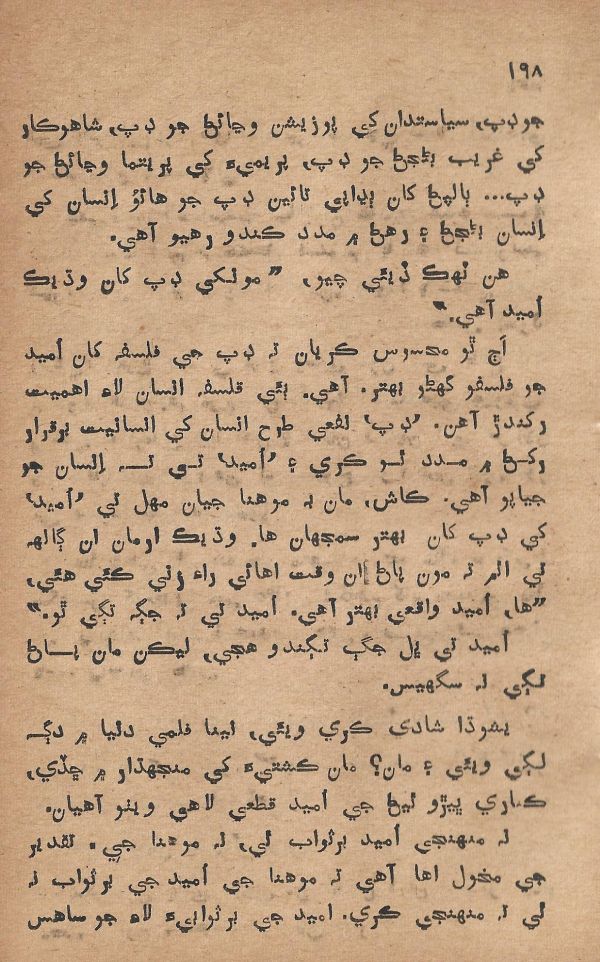 ۱۹۸
جو ڊپ، سياستدان کي پوزيشن وڃائڻ جو ڊپ، شاهوڪار
کي غريب بڻجڻ جو ڊپ، پريميءَ کي پريتما وڃائڻ جو
ڊپ... ٻالپڻ کان ٻڍاپي تائين ڊپ جو هائوُ اِنسان کي
اِنسان بڻجڻ ۽ رهڻ ۾ مدد ڪندو رهيو آهي.
هن ٽهڪ ڏيئي چيو، ”مونکي ڊپ کان وڌيڪ
اُميد آهي.“
اَڄ ٿو محسوس ڪريان ته ڊپ جي فلسفہ کان اُميد
جو فلسفو گهڻو بهتر. آهي. ٻئي فلسفہ انسان لاءِ اهميت
رکندڙ آهن. ’ڊپ‘ نفعي طرح انسان کي انسانيت برقرار
رکڻ ۾ مدد ٿو ڪري ۽ ’اُميد‘ ئي ته اِنسان جو
جياپو آهي. ڪاش، مان به موهنا جيان مهل تي ’اُميد‘
کي ڊپ کان بهتر سمجهان ها. وڌيڪ ارمان ان ڳالهه
تي اٿم ته مون پاڻ ان وقت اهائي راءِ زني ڪئي هئي،
”ها، اُميد واقعي بهتر آهي. اُميد تي ته جڳ ٽڳي ٿو.“
اُميد تي ڀل جڳ ٽڳندو هجي، ليڪن مان پاڻ
ٽڳي نه سگهيس.
يشوڌا شادي ڪري ويئي، لينا فلمي دنيا ۾ دڳ
لڳي ويئي ۽ مان؟ مان ڪشتيءَ کي منجهڌار ۾ ڇڏي،
ڪناري ٻيڙو نيڻ جي اُميد قطعي لاهي ويٺو آهيان.
نه منهنجي اُميد برثواب ٿي، نه موهنا جي. تقدير
جي مخول اها آهي ته موهنا جي اُميد جي برثواب نه
ٿي ته منهنجي ڪري. اميد جي برثوابيءَ لاءِ جو ساهس